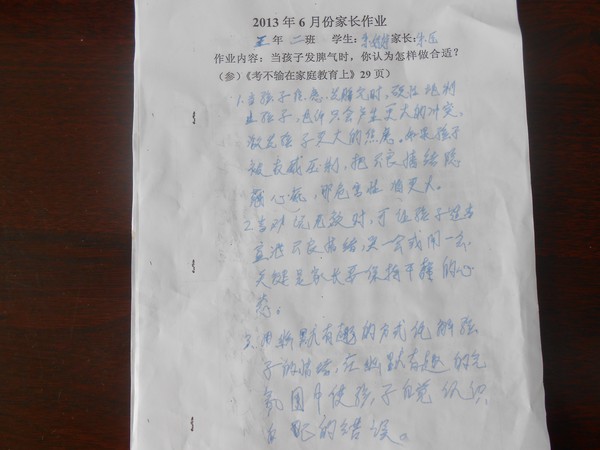 2013年6月份家长作业
五年二班 学生: 家长:朱
作业内容：当孩子发脾气时，你认为怎样做合适？
（参）《考不输在家庭教育上》29页）
1.当孩子焦虑、发脾气时,硬性抵制
孩子,也许只会产生更大的冲突,
激起孩子更大的焦虑。如果孩子
被权威压制,把不良情绪隐
藏心底,那危害性 更大。
2.当 无效时,可让孩子
宣泄不良情绪,哭一会或闹一会,
关键是家长要保持平静的心
态。
3.用幽默有趣的方式化解孩
子的情绪,在幽默有趣的气
氛围中使孩子自觉认识
自己的错误。